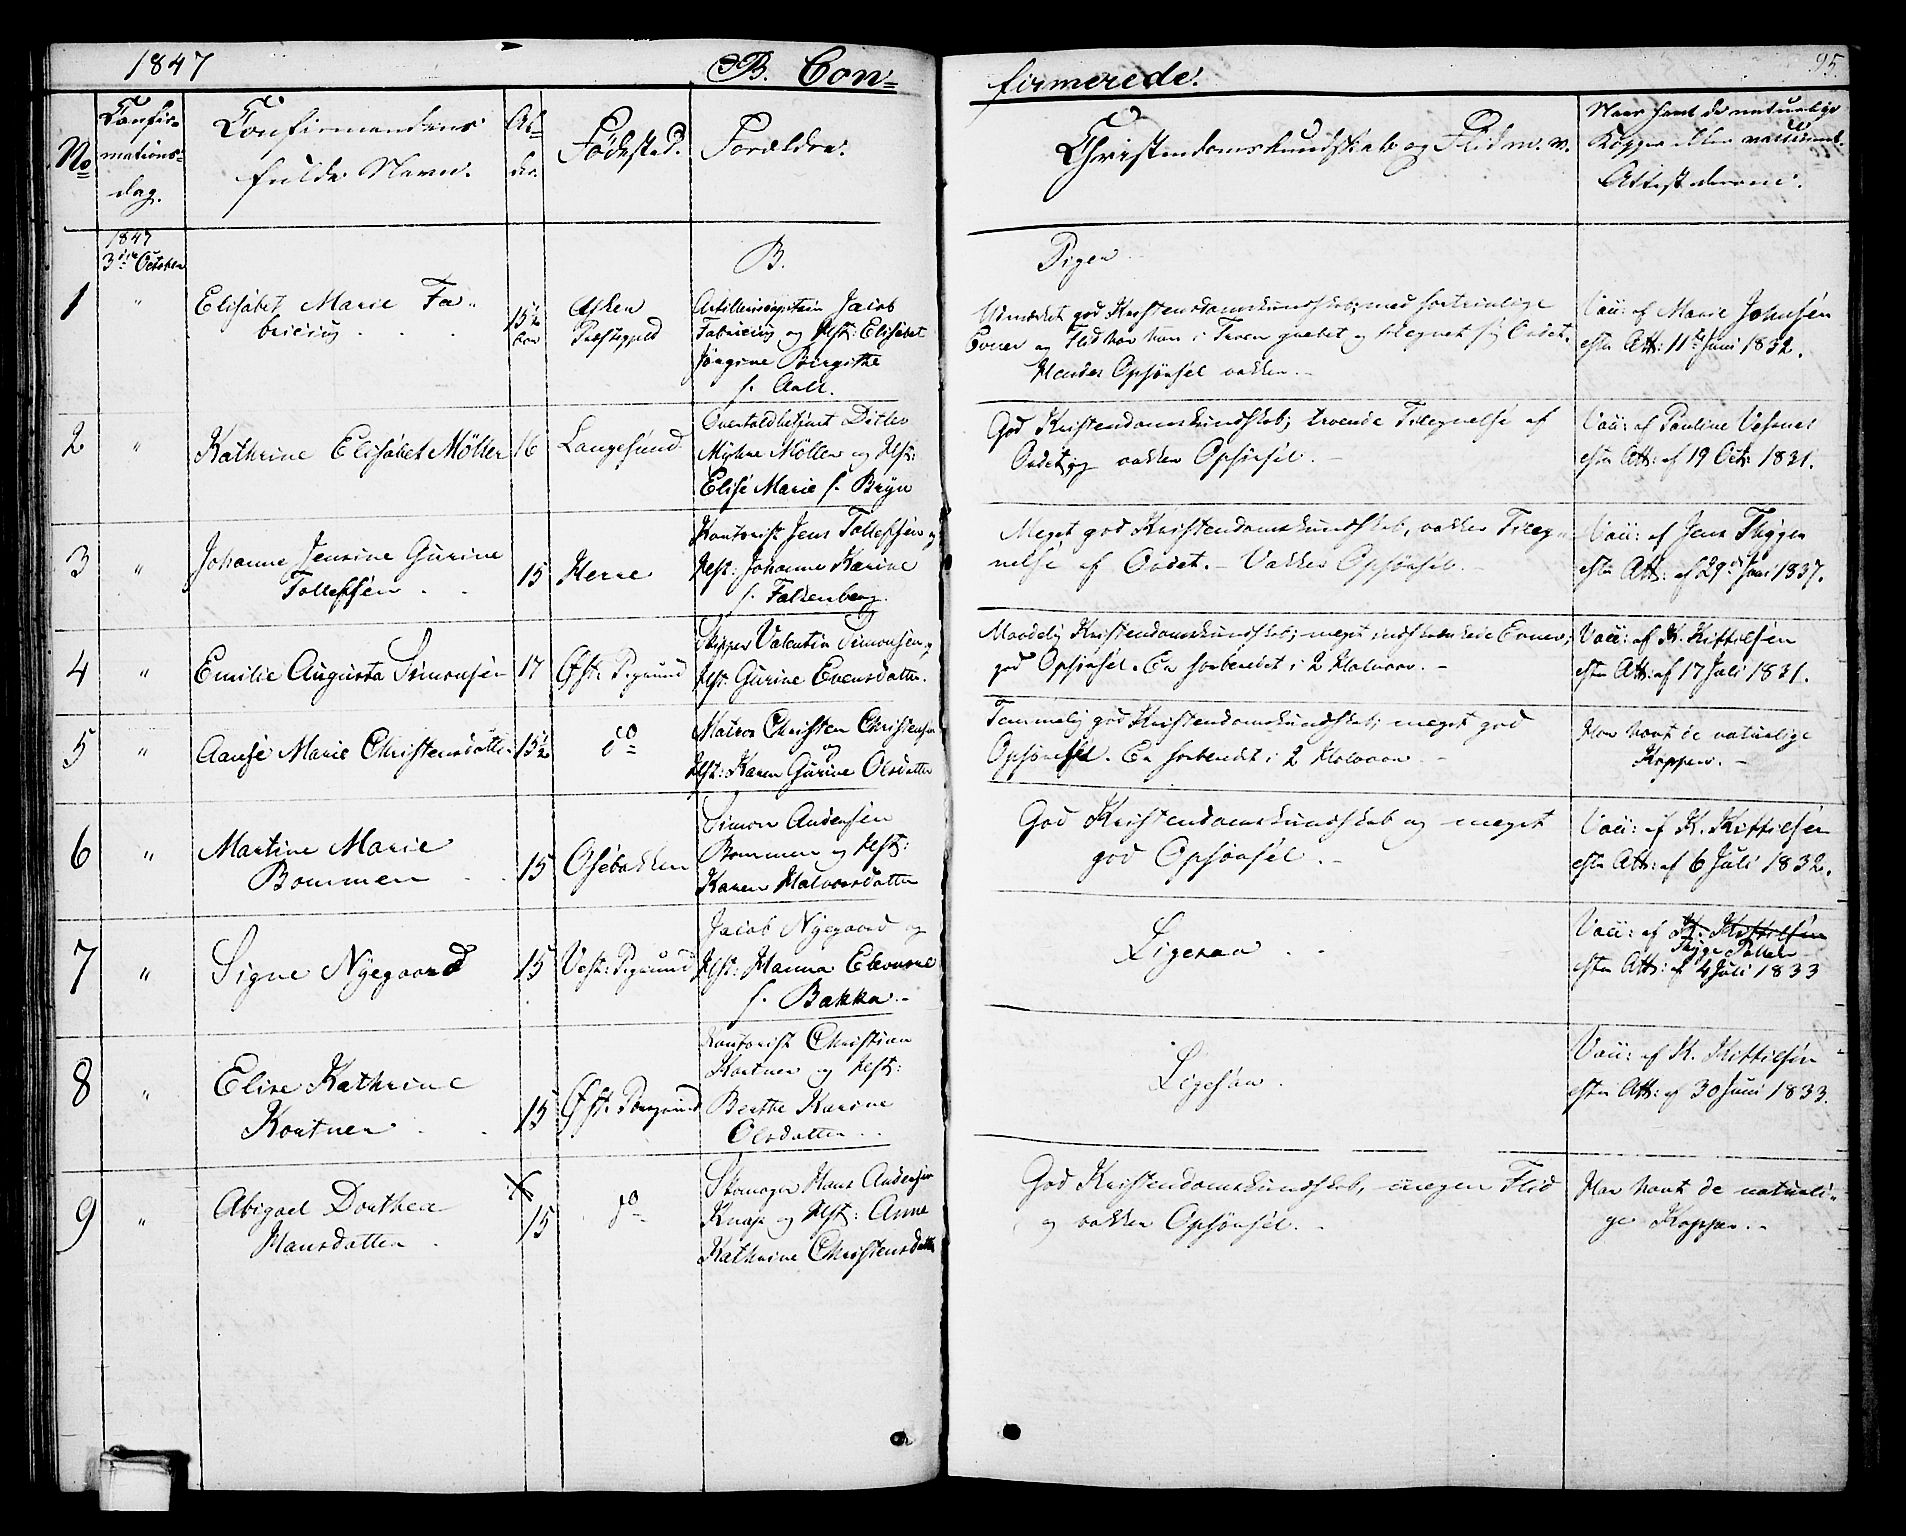 1847
B. Con=
firmerede.
95.
No
Confir=
mations=
dag.
Confirmandens
fulde Navn.
Al=
der
Födested.
Forældre.
Christendomskundskab og Flid m. v.
Naar havt de naturlige
Kopper eller vaccineret.
Attest derom.
1847
3die October
B.
Piger
1
"
Elisabet Marie Fa=
bricius
15½
Asker
Præstegjeld
Artillericapitain Jacob
Fabricius og Hst: Elisabet
Jörgine Birgithe
f. Aall.
Udmærket god Kristendomskundskab; med fortrinlige
Evner og Flid har hun i Troen grebet og tilegnet sig Ordet.
Hendes Opförsel vakker. -
Vacc: af Marie Johnsen
efter Att: 11te Juni 1832.
2
"
Kathrine Elisabet Möller
16
Langesund
Overtoldbetjent Ditlev
Möller og Hst:
Elise Marie f. Bryn
God Kristendomskundskab; troende Tilegnelse af
Ordet og vakker Opförsel. -
Vacc: af Pauline
efter Att: af 19 Oct: 1831.
3
"
Johanne Jensine Gurine
Tollefsen
15
Herre
Kontorist Jens Tollefsen og
Hst: Johanne Karine
f. Falkenberg.
Meget god Kristendomskundskab, vakker Tileg=
nelse af Ordet. - Vakker Opförsel. -
Vacc: af Jens Thyges
efter Att: af 29de Juni 1837.
4
"
Emilie Augusta Simonsen
17
Öst: Porsgrund
Skipper Valentin Simonsen og
Hst: Gurine Evensdatter.
Maadelig Kristendomskundskab; meget indskrænkede Evner;
god Opförsel. Er forberedt i 2 Halvaar. -
Vacc: af K. Kittilsen
efter Att: af 17 Juli 1831.
5
"
Aanse Marie Christensdatter
15½
do
Matros Christen Christensen
og
Hst: Karen Gurine Olsdatter
Temmelig god Kristendomskundskab; meget god
Opförsel. Er forberedt i 2 Halvaar. -
Har havt de naturlige
Kopper. -
6
"
Martine Marie
Bommen
15
Osebakken
Simon Andersen
Bommen og Hst:
Karen Halvorsdatter
God Kristendomskundskab og meget
god Opförsel. -
Vacc: af K. Kittilsen
efter Att: af 6 Juli 1832.
7
"
Signe Nyegaard
15
Vest: Porsgrund
Jacob Nyegaard og
Hst: Hanna Elenore
f. Bakka. -
Ligesaa
Vacc: af K. Kittilsen
efter Att: af 4 Juli 1833
8
"
Elise Kathrine
Kortner
15
Öst: Porsgrund
Kontorist Christian
Kortner og Hst:
Berthe Karine
Olsdatter
Ligesaa.
Vacc: af K. Kittilsen
efter Att: af 30 Juni 1833.
9
"
Abigael Dorthea
Hansdatter
x
15
do
Skomager Hans Andersen
Knap og Hst: Anne
Kathrine Christensdatter
God Kristendomskundskab, megen Flid
og vakker Opförsel. -
Har havt de naturli=
ge Kopper. -